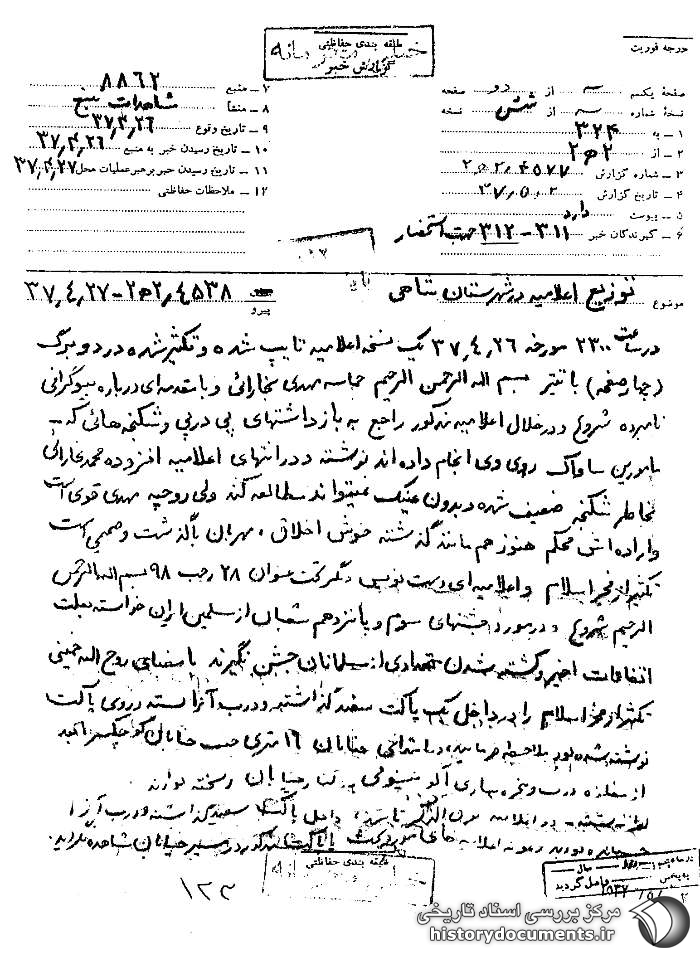 طبقه بندی حفاظتی
گزارش خبر
درجه فوریت
صفحه یکم از دو صفحه
نسخه شماره سه از شش نسخه
۱ ـ به ۳۲۴
۲ ـ از ۲ه۲
۳ ـ شماره گزارش ۲ه۲٫۴۵۷۷
۴ ـ تاریخ گزارش ۳۷٫۵٫۲
۵ ـ پیوست دارد
۶ ـ گیرندگان خبر ۳۱۱ - ۳۱۲ جهت استحضار
۷ ـ منبع ۸۸۶۲
۸ ـ منشأ مشاهدات منبع
۹ ـ تاریخ وقوع ۳۷٫۴٫۲۶
۱۰ ـ تاریخ رسیدن خبر به منبع ۳۷٫۴٫۲۶
۱۱ ـ تاریخ رسیدن خبر برهبر عملیات محل ۳۷٫۴٫۲۷
۱۲ ـ ملاحظات حفاظتی
موضوع توزیع اعلامیه در شهرستان شاهی
پیرو ۲ه۲٫۴۵۳۸ - ۳۷٫۴٫۲۷
در ساعت ۲۳۰۰ مورخه ۳۷٫۴٫۲۶ یک نسخه اعلامیه تایپ شده و تکثیر شده در دو برگ
(چهار صفحه) با تیتر بسم اله الرحمن الرحیم حماسه مهدی بخارائی و با مقدمه‌ای درباره بیوگرافی
نامبرده شروع و در خلال اعلامیه مذکور راجع به بازداشتهای پی در پی و شکنجه‌هائی که
مامورین ساواک روی وی انجام داده‌اند نوشته و در انتهای اعلامیه افزوده بخارائی
بخاطر شکنجه ضعیف شده و بدون عینک نمیتواند مطالعه کند ولی روحیه مهدی قوی است
و اراده‌اش محکم هنوز هم مانند گذشته خوش اخلاق، مهربان با گذشت و صمیمی است
تکثیر از فجر اسلام و اعلامیه‌ای دست نویس دیگر تحت عنوان ۲۸ رجب ۹۸ بسم اله الرحمن
الرحیم شروع و در مورد جشنهای سوم و پانزدهم شعبان از مسلمین ایران خواسته بعلت
اتفاقات اخیر و کشته شدن تعدادی از مسلمانان جشن نگیرند با امضای روح اله خمینی
تکثیر از فجر اسلام را در داخل یک پاکت سفید گذاشته و درب آنرا بسته و روی پاکت
نوشته شده بود ملاحظه فرمایید، در ابتدای خیابان ۱۶ متری جنب خیابان
از مغازه درب و پنجره سازی آلومینیومی در کنار خیابان ریخته بودند.
داخل پاکت سفید گذاشته و درب آنرا
بودند و نمونه اعلامیه های پاکت مذکور در مسیر خیابان مشاهده گردید.
طبقه بندی حفاظتی
۱۲۳
مرکز بررسی اسناد تاریخی
historydocuments.ir